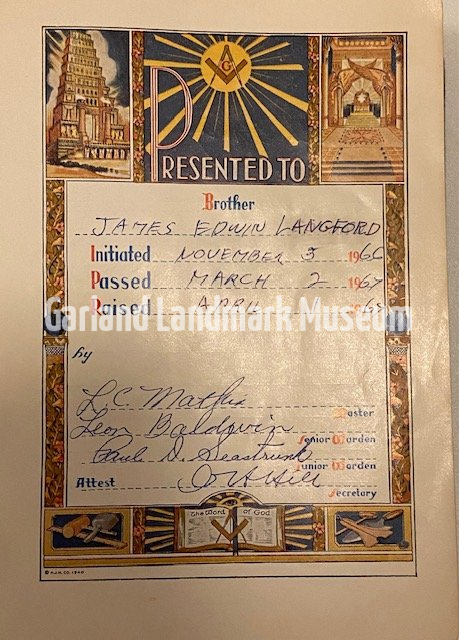 G
PRESENTED TO
Brother
JAMES EDWIN LANGFORD
Initiated NOVEMBER 3 1966
Passed MARCH 2 1967
Raised APRIL 1968
Garland Landmark Museum
by
L.C. Mathis Master
Leon Baldwin Senior Warden
Paul D. Seastrunk Junior Warden
Attest Hill Secretary
The Word of God
© H.J.H. CO. 1940